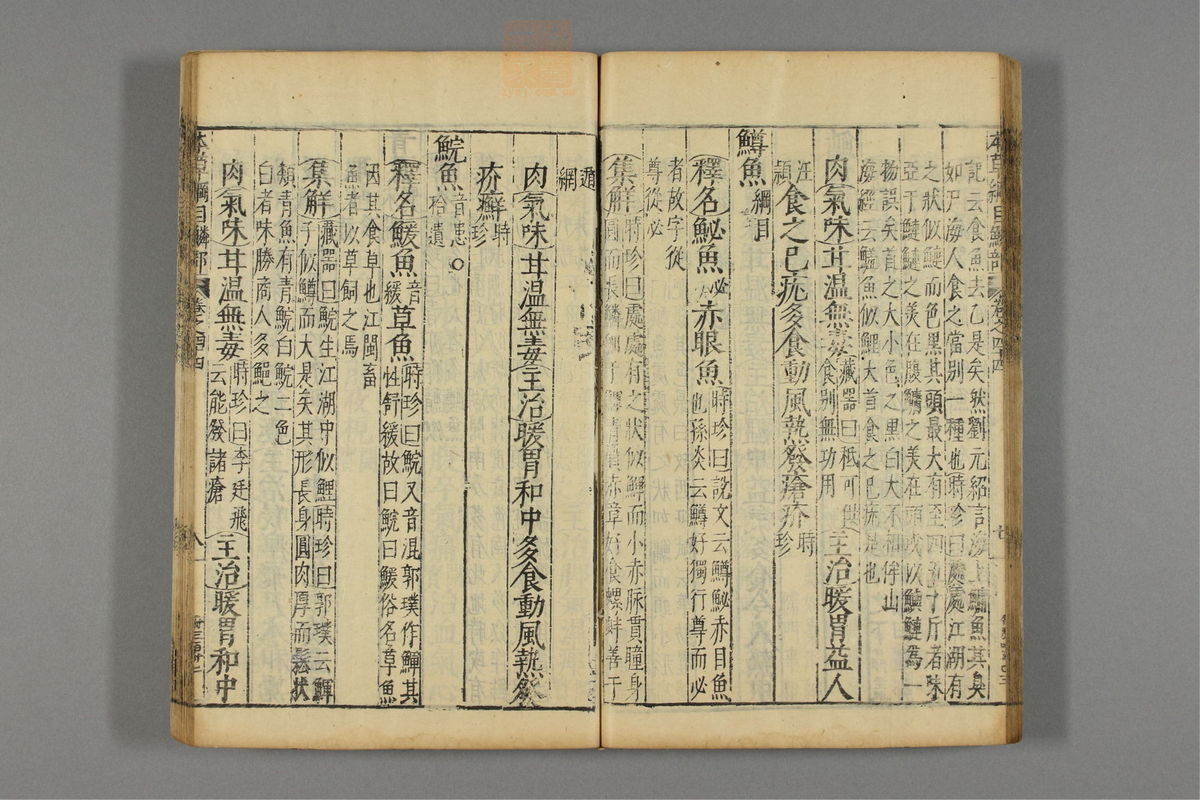 本草綱目鱗部
卷之四十四
記云食魚去乙是矣然劉元紹言海上鱅魚其臭
如尸海人食之當別一種也時珍曰處處江湖有
之狀似鰱而色黑其頭最大有至四五十斤者味
亞于鰱鰱之美在腹鱅之美在頭或以鱅鰱為一
物誤矣首之大小色之黑白大不相侔山
海經云鱅魚似鯉大首食之已疣是也
肉氣味甘溫無毒藏器曰秪可供
食別無功用
主治暖胃益人
汪
頴
食之已疣多食動風熱發瘡疥時
珍
鱒魚綱目
釋名鮅魚必
赤眼魚時珍曰說文云鱒鮅赤目魚
也孫炎云鱒好獨行尊而必
者故字從
尊從必
集解時珍曰處處有之狀似鯶而小赤脉貫瞳身
圓而長鱗細于鯶青質赤章好食螺蚌善于
遁
網
肉氣味甘溫無毒主治暖胃和中多食動風熱發
疥癬時
珍
鯇魚音患
拾遺
釋名鰀魚音
緩
草魚時珍曰鯇又音混郭璞作鯶其
性舒緩故曰鯇曰鰀俗名草魚
因其食草也江閩畜
魚者以草飼之焉
集解藏器曰鯇生江湖中似鯉時珍曰郭璞云鯶
子似鱒而大是矣其形長身圓肉厚而鬆狀
類青魚有青鯇白鯇二色
白者味勝商人多鮑之
肉氣味甘溫無毒時珍曰李廷飛
云能發諸瘡
主治暖胃和中
本草綱目鱗部
卷之四十四